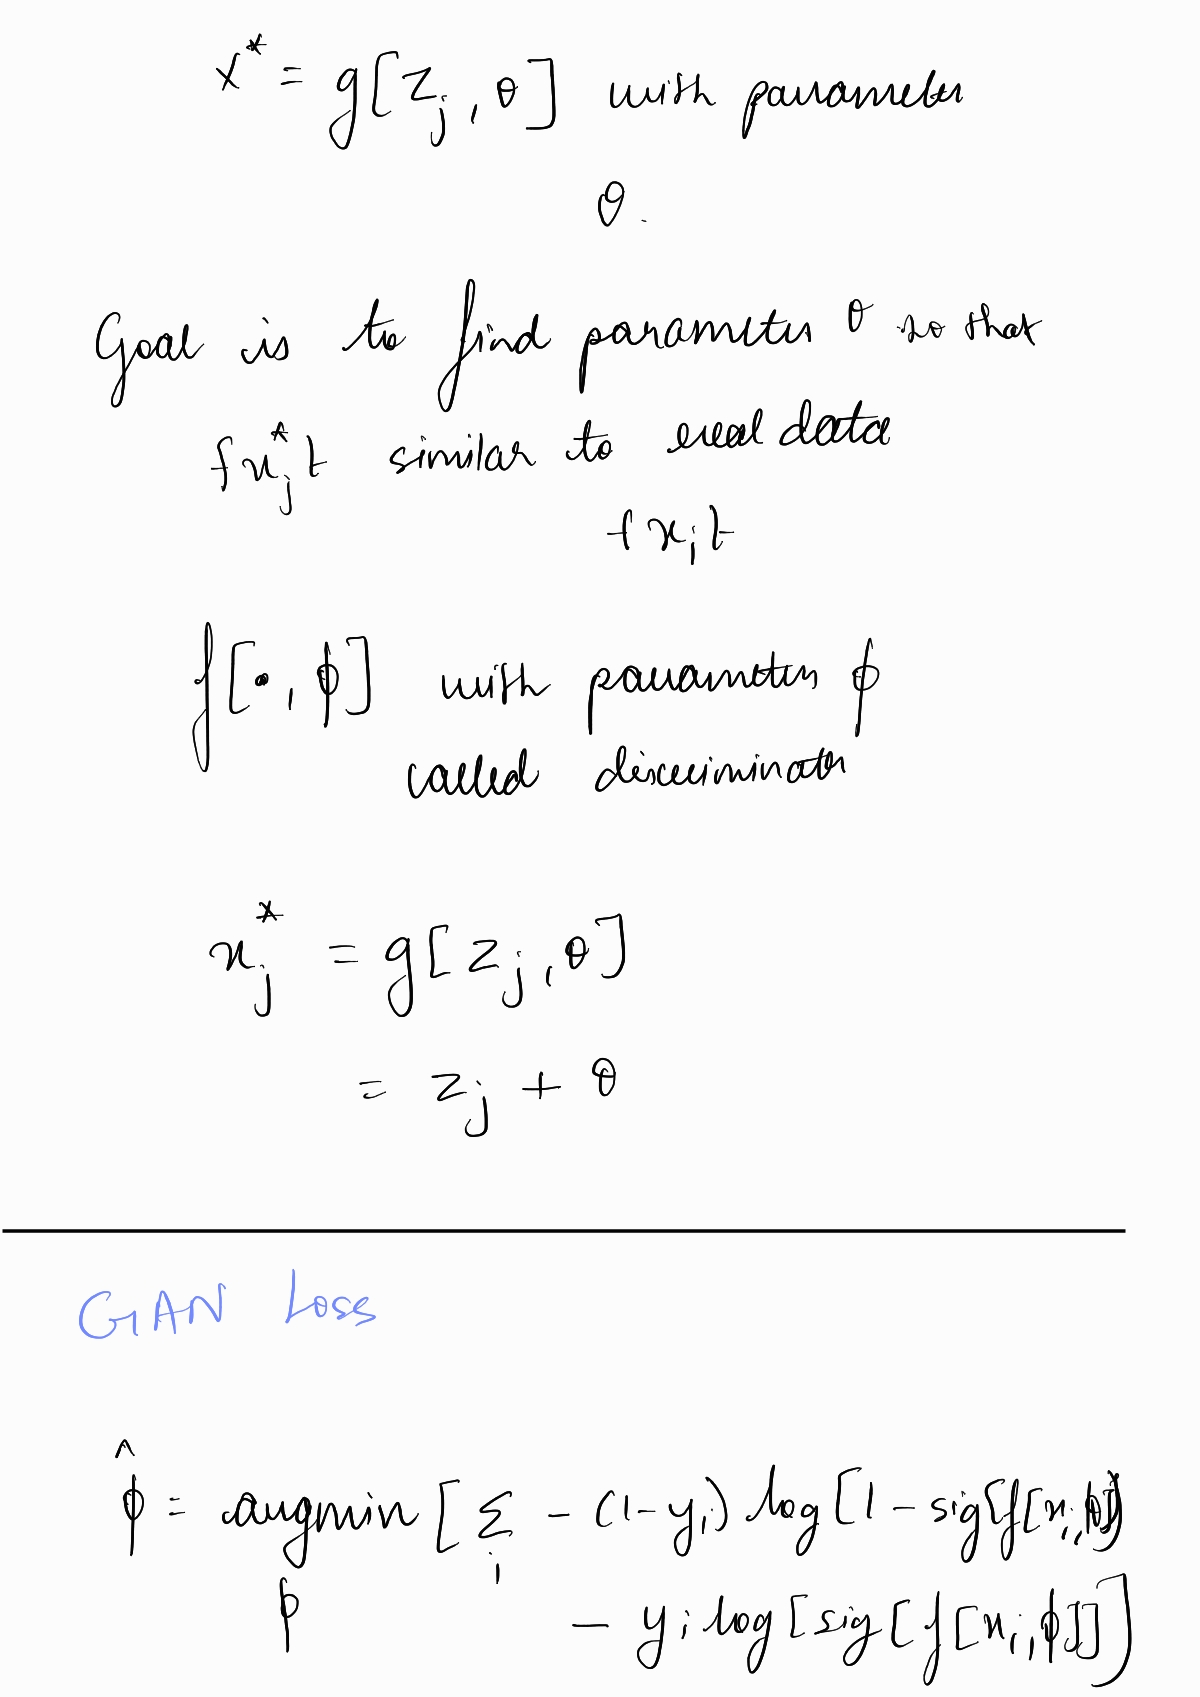 x* = g[z_j, θ] with parameter
θ.
Goal is to find parameter θ so that
{x_j*} similar to real data
{x_i}
f[•, ϕ] with parameters ϕ
called discriminator
x_j* = g[z_j, θ]
= z_j + θ
GAN Loss
ϕ̂ = argmin_ϕ [Σ_i - (1-y_i) log[1 - sig[f[x_i, ϕ]]]
- y_i log[sig[f[x_i, ϕ]]]]